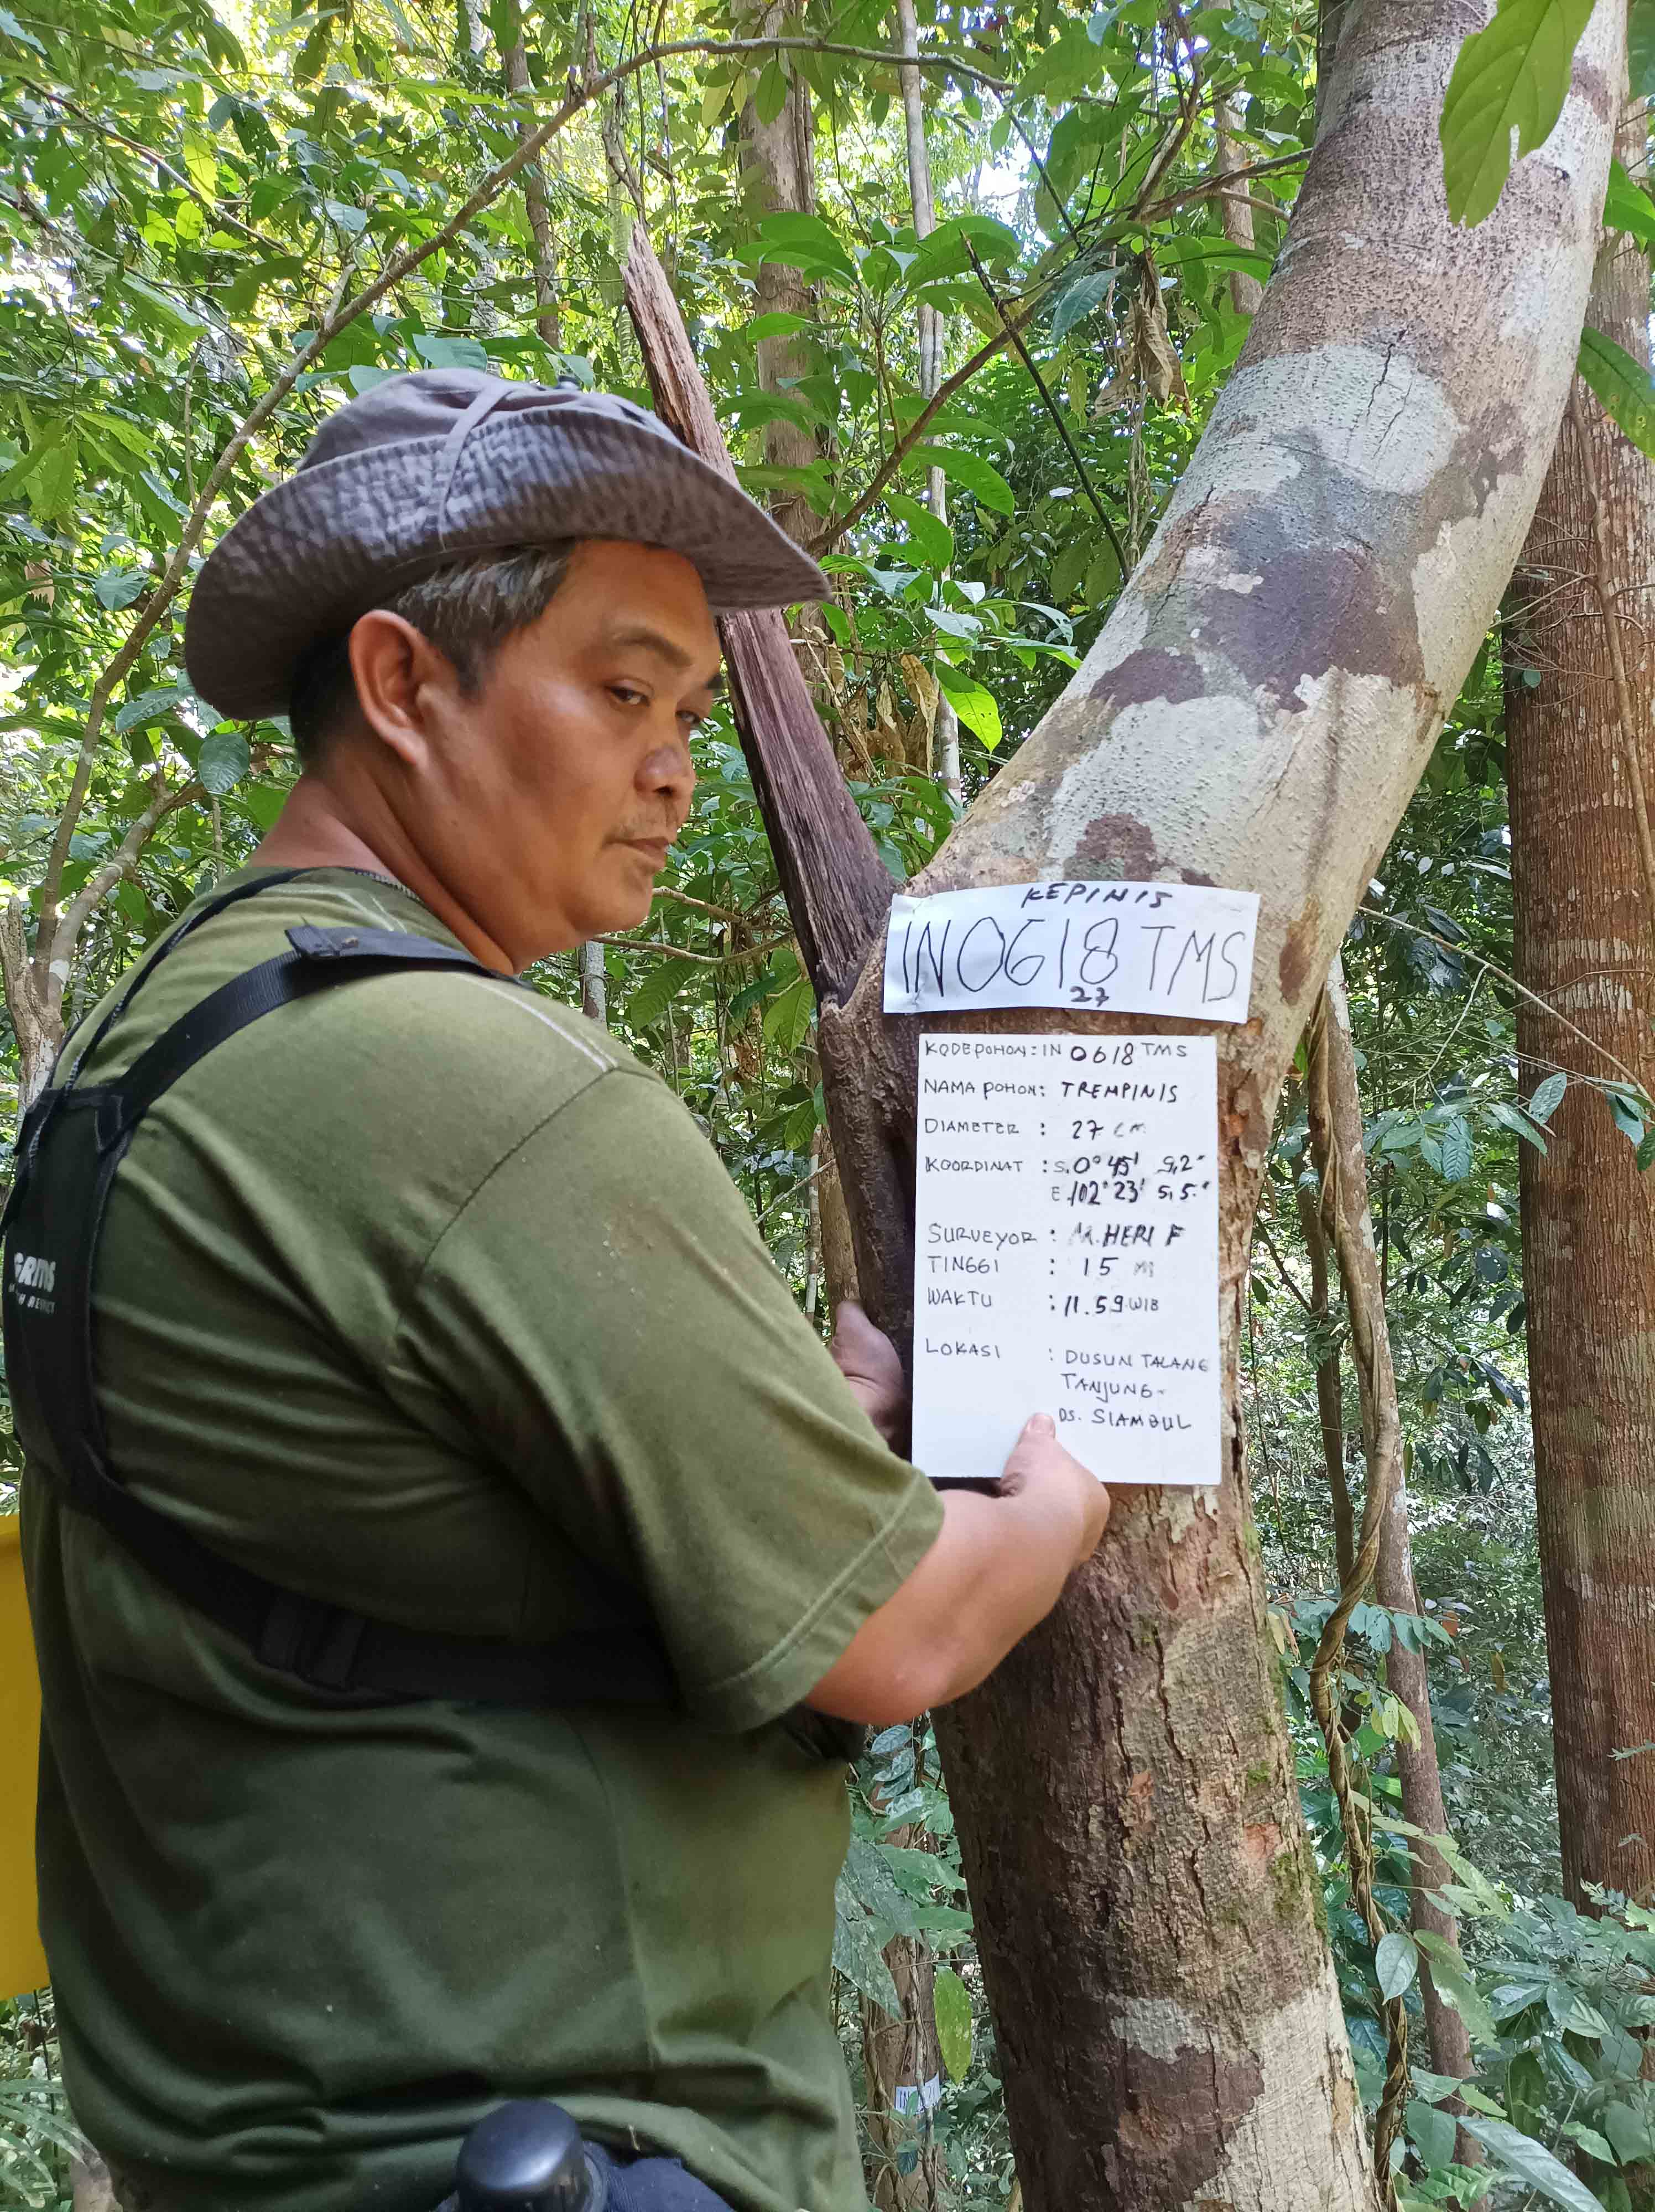 KEPINIS
IN0618 TMS
27
KODE POHON : IN 0618 TMS
NAMA POHON : TREMPINIS
DIAMETER : 27 CM
KOORDINAT : S. 0° 45' 9,2"
E. 102° 23' 5,5"
SURVEYOR : M. HERI F
TINGGI : 15 M
WAKTU : 11.59 WIB
LOKASI : DUSUN TALANG
TANJUNG-
DS. SIAMBUL